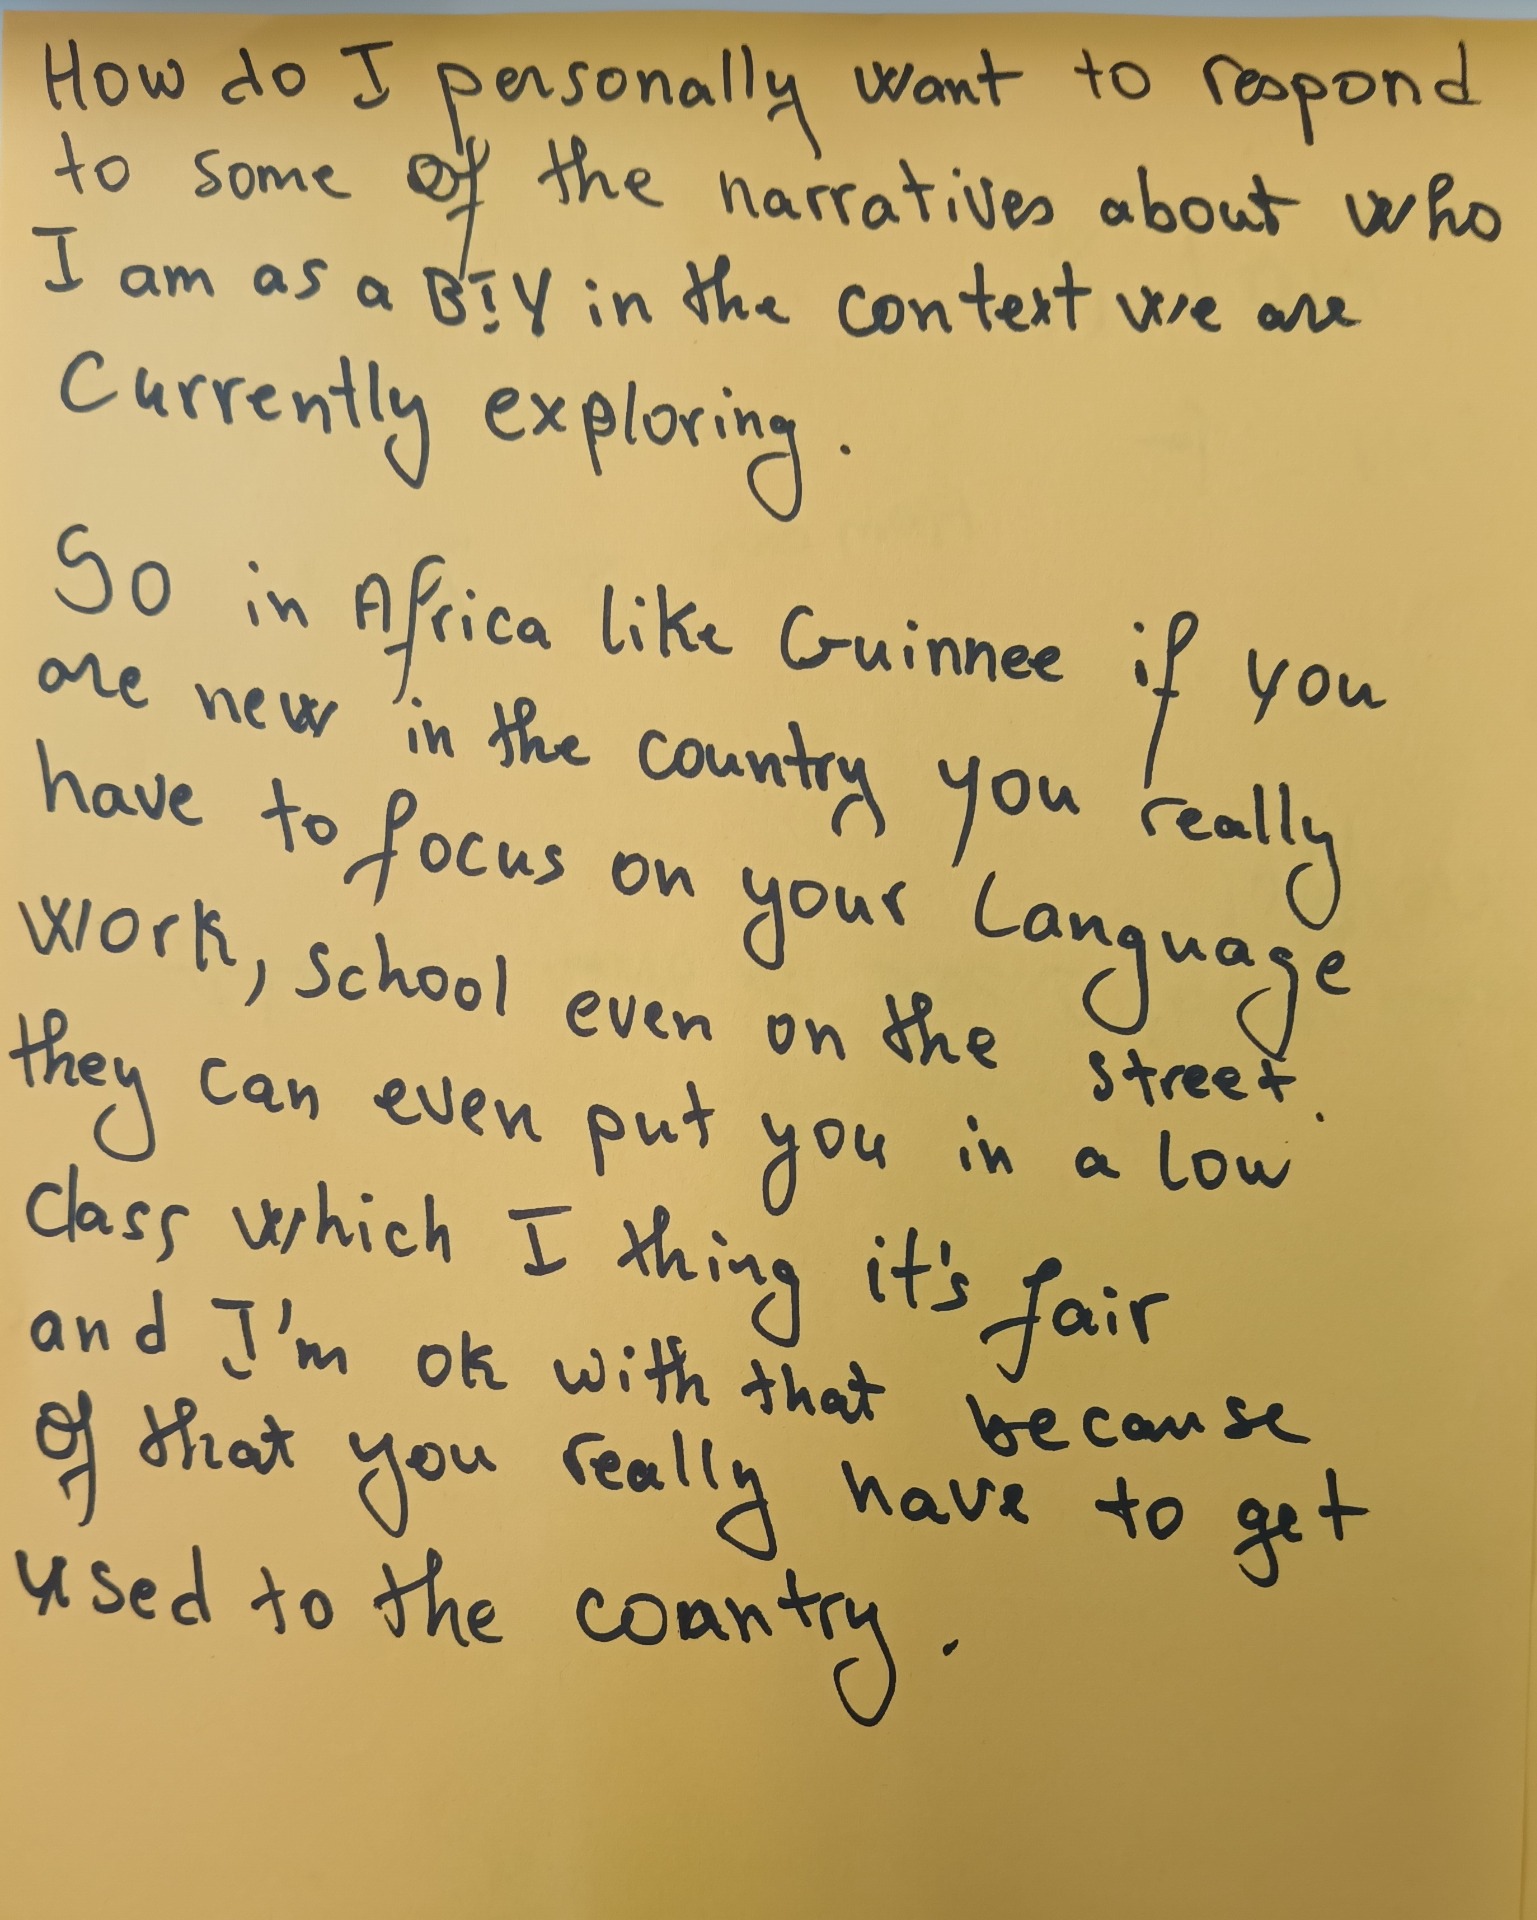 How do I personally want to respond
to some of the narratives about who
I am as a B!Y in the context we are
Currently exploring.
So in Africa like Guinnee if you
are new in the country you really
have to focus on your Language
Work, School even on the street.
they can even put you in a low
Class which I thing it's fair
and I'm ok with that because
of that you really have to get
used to the country.